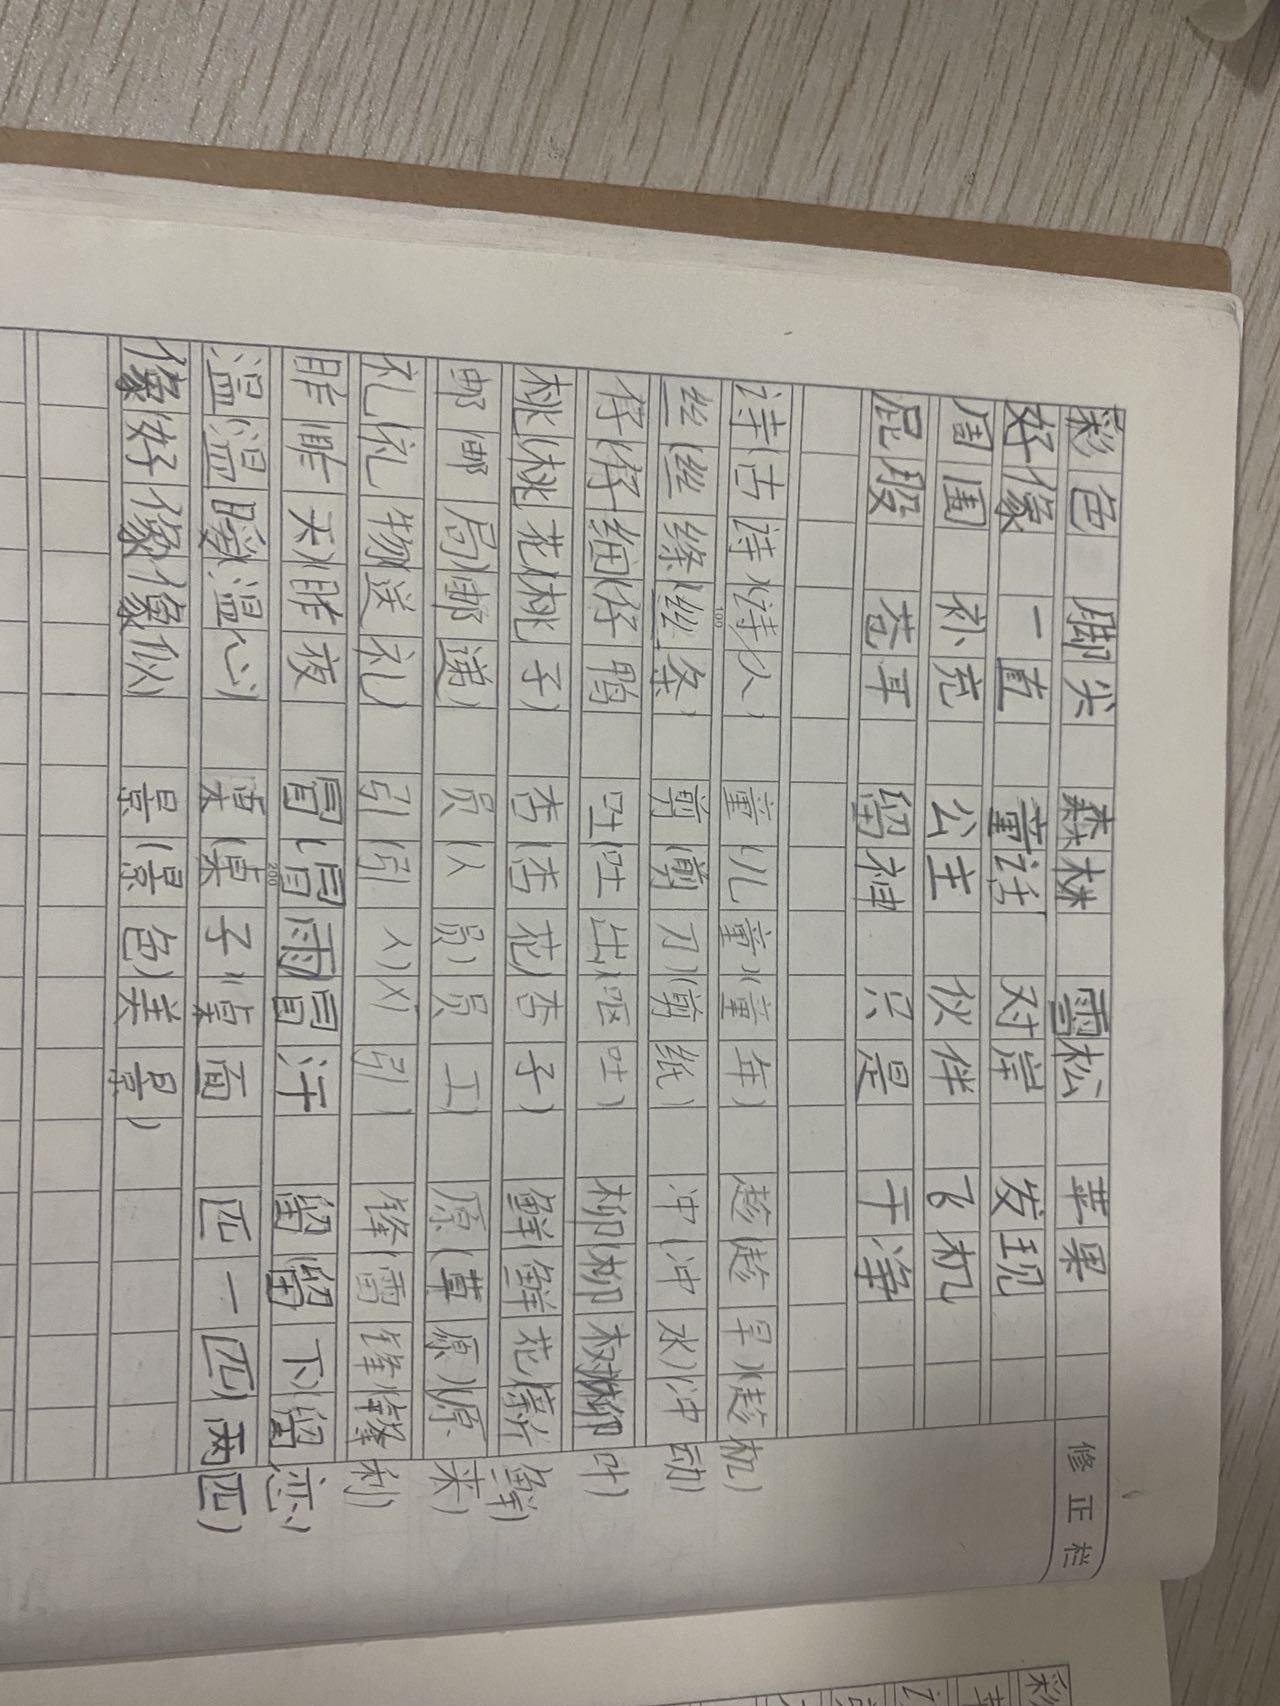 彩色 脚尖 森林 雪松 苹果
好像 一直 童话 对岸 发现
周围 补充 公主 伙伴 飞机
屁股 苍耳 留神 只是 干净
诗(古诗)(诗人) 童(儿童)(童年) 趁(趁早)(趁机)
丝(丝绦)(丝条) 剪(剪刀)(剪纸) 冲(冲水)(冲动)
仔(仔细)(仔鸭) 吐(吐出)(呕吐) 柳(柳树)(柳叶)
桃(桃花)(桃子) 杏(杏花)(杏子) 鲜(鲜花)(新鲜)
邮(邮局)(邮递) 员(人员)(员工) 原(草原)(原来)
礼(礼物)(送礼) 引(引人)(引) 锋(雷锋)(锋利)
昨(昨天)(昨夜) 冒(冒雨)(冒汗) 留(留下)(留恋)
温(温暖)(温心) 桌(桌子)(桌面) 匹(一匹)(两匹)
像(好像)(像似) 景(景色)(美景)
100
200
修正栏
彩